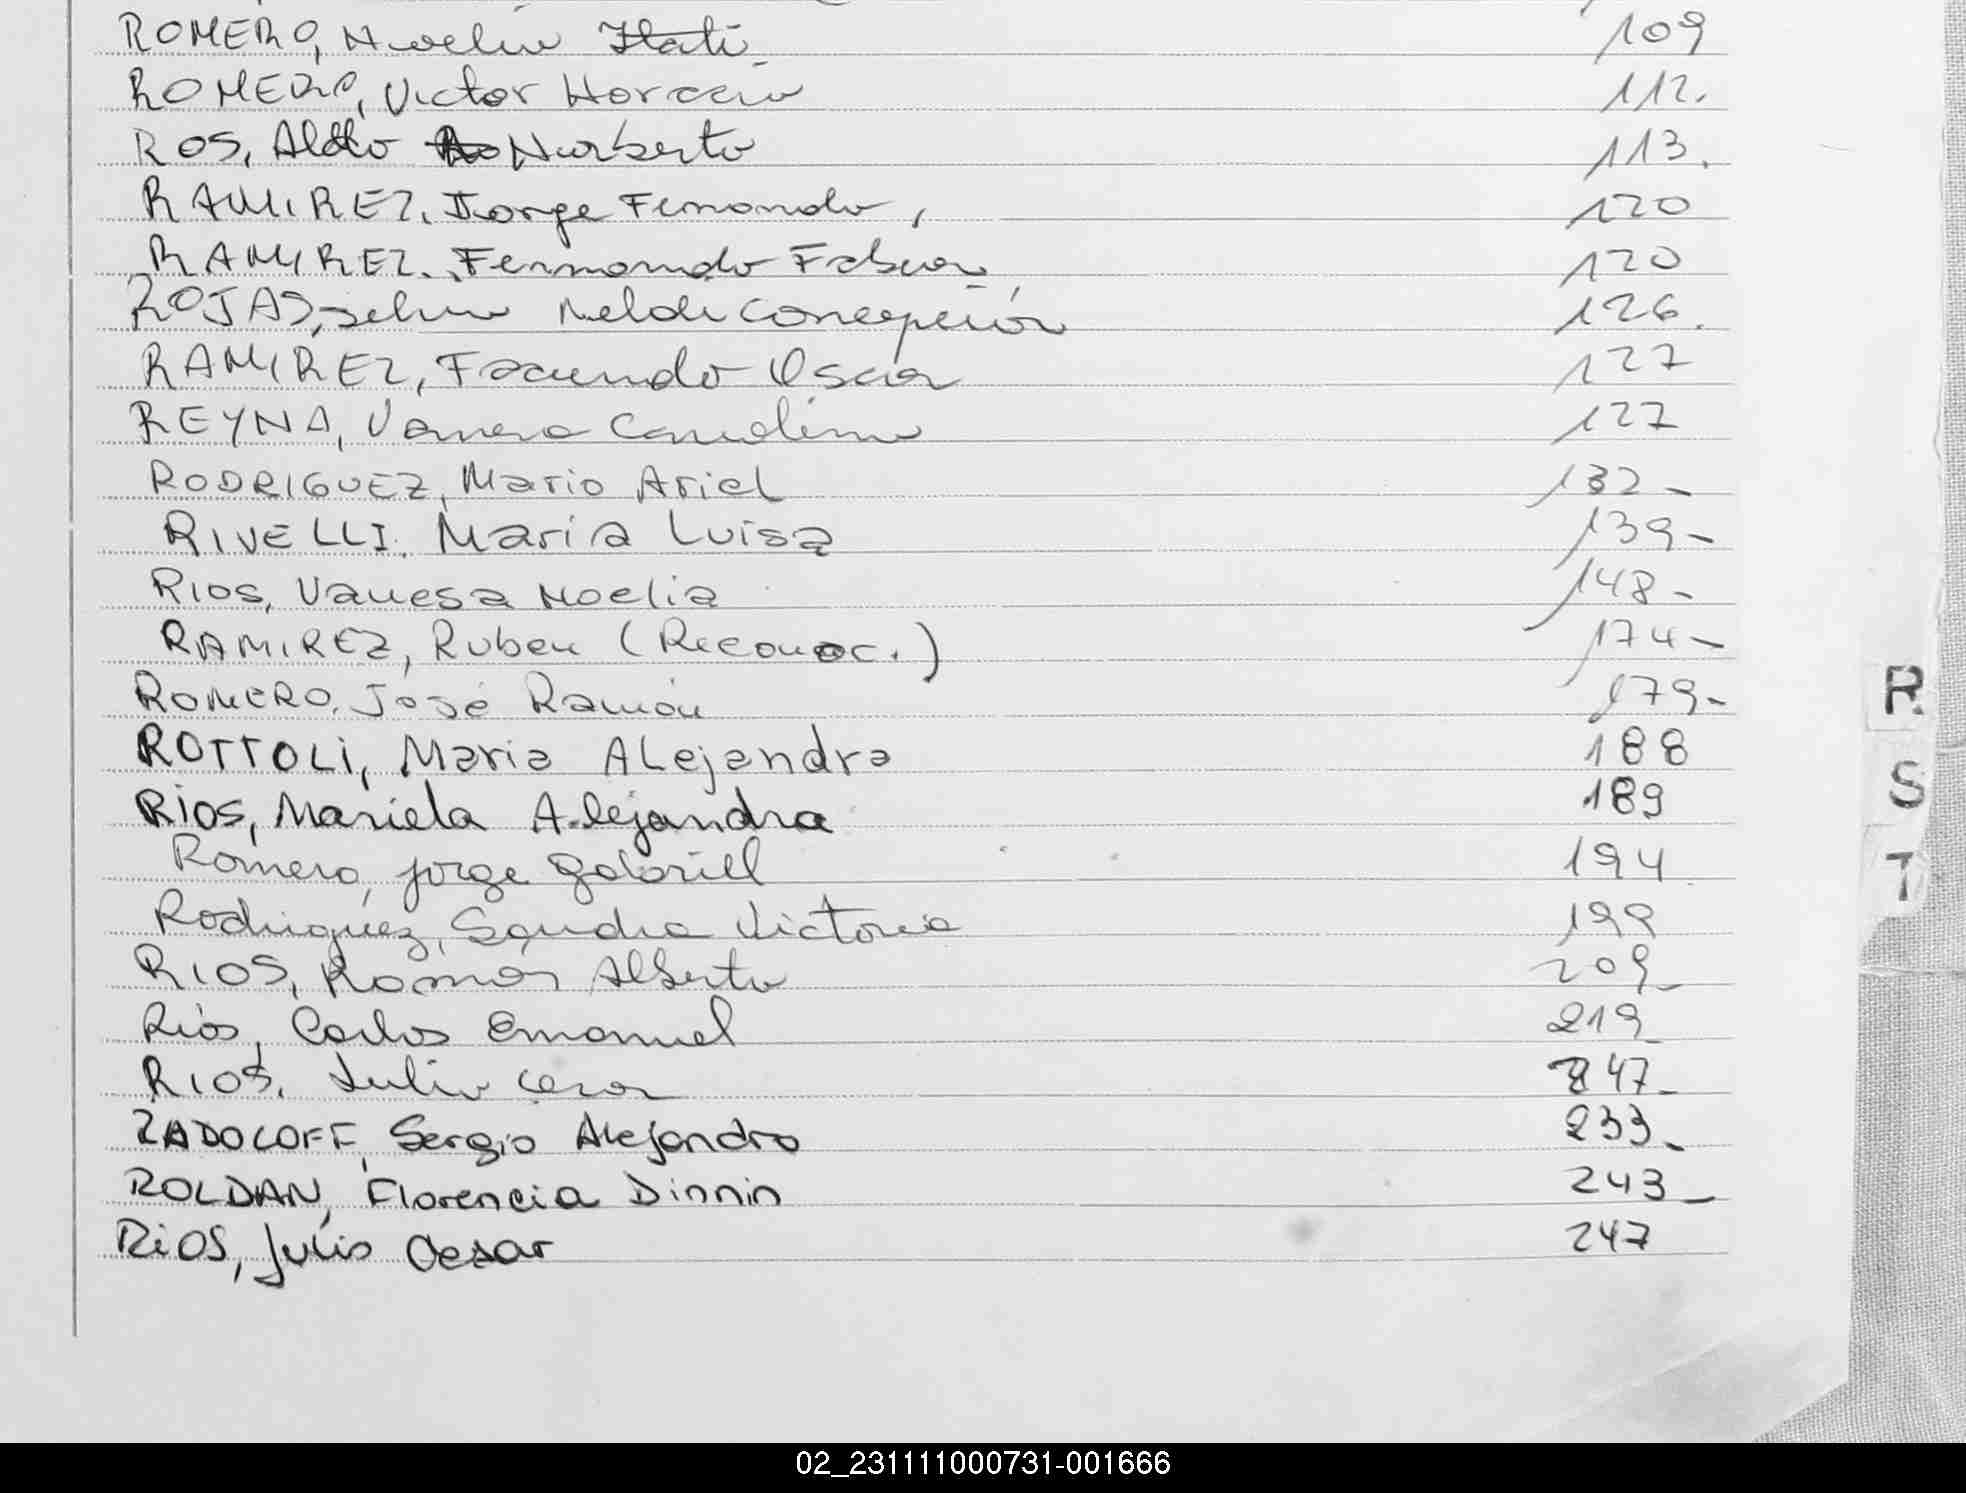 ROMERO, Noelia Itatí 109
ROMERO, Victor Horacio 112.
ROS, Aldo Norberto 113.
RAMIREZ, Jorge Fernando, 120
RAMIREZ. Fernando Fabian 120
ROJAS, Concepción 126.
RAMIREZ, Facundo Oscar 127
REYNA, Vanesa Carolina 127
RODRIGUEZ, Mario Ariel 132-
RIVELLI. Maria Luisa 139-
RIOS, Vanesa Noelia 148-
RAMIREZ, Ruben (Reconoc.) 174-
ROMERO, José Ramón 179-
ROTTOLI, Maria ALejandra 188
RIOS, Mariela Alejandra 189
Romero, Jorge Gabriell 194
Rodriguez, Sandra Victoria 199
RIOS, Ramon Alberto 209-
Ríos, Carlos Emanuel 219-
RIOS, Julio Cesar 247-
RADOLOFF, Sergio Alejandro 233-
ROLDAN, Florencia Dinnin 243-
RiOS, Julio Cesar 247
R
S
T
02_231111000731-001666